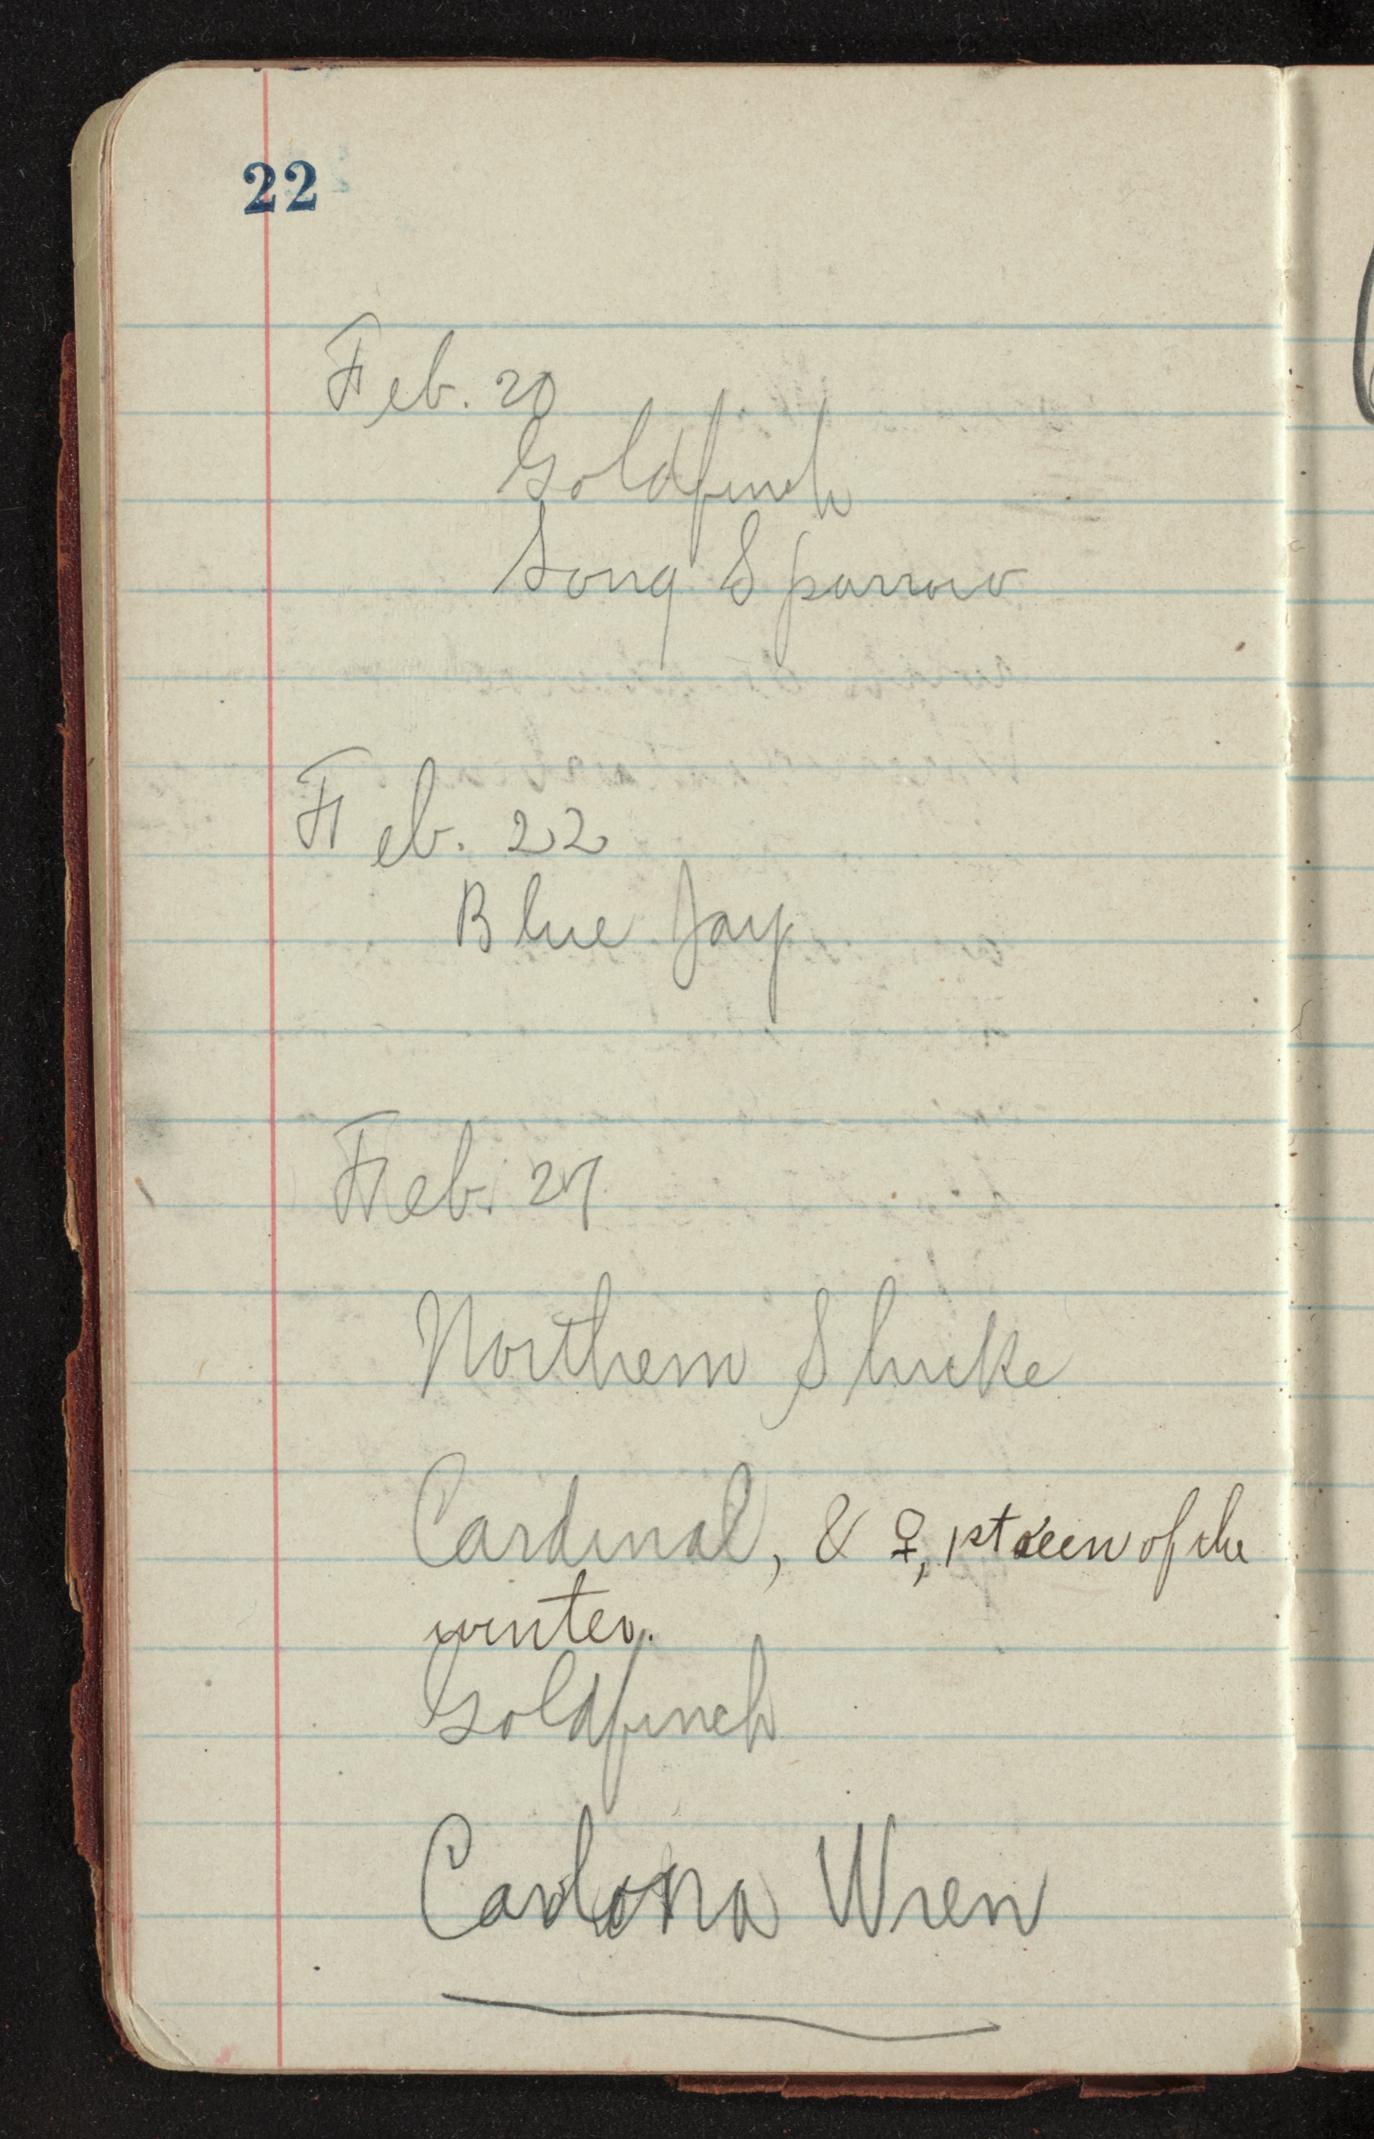 22
Feb. 20
Goldfinch
Song Sparrow
Feb. 22
Blue Jay
Feb. 27
Northern Shrike
Cardinal, & ♀, 1st seen of the
winter.
Goldfinch
Carlona Wren